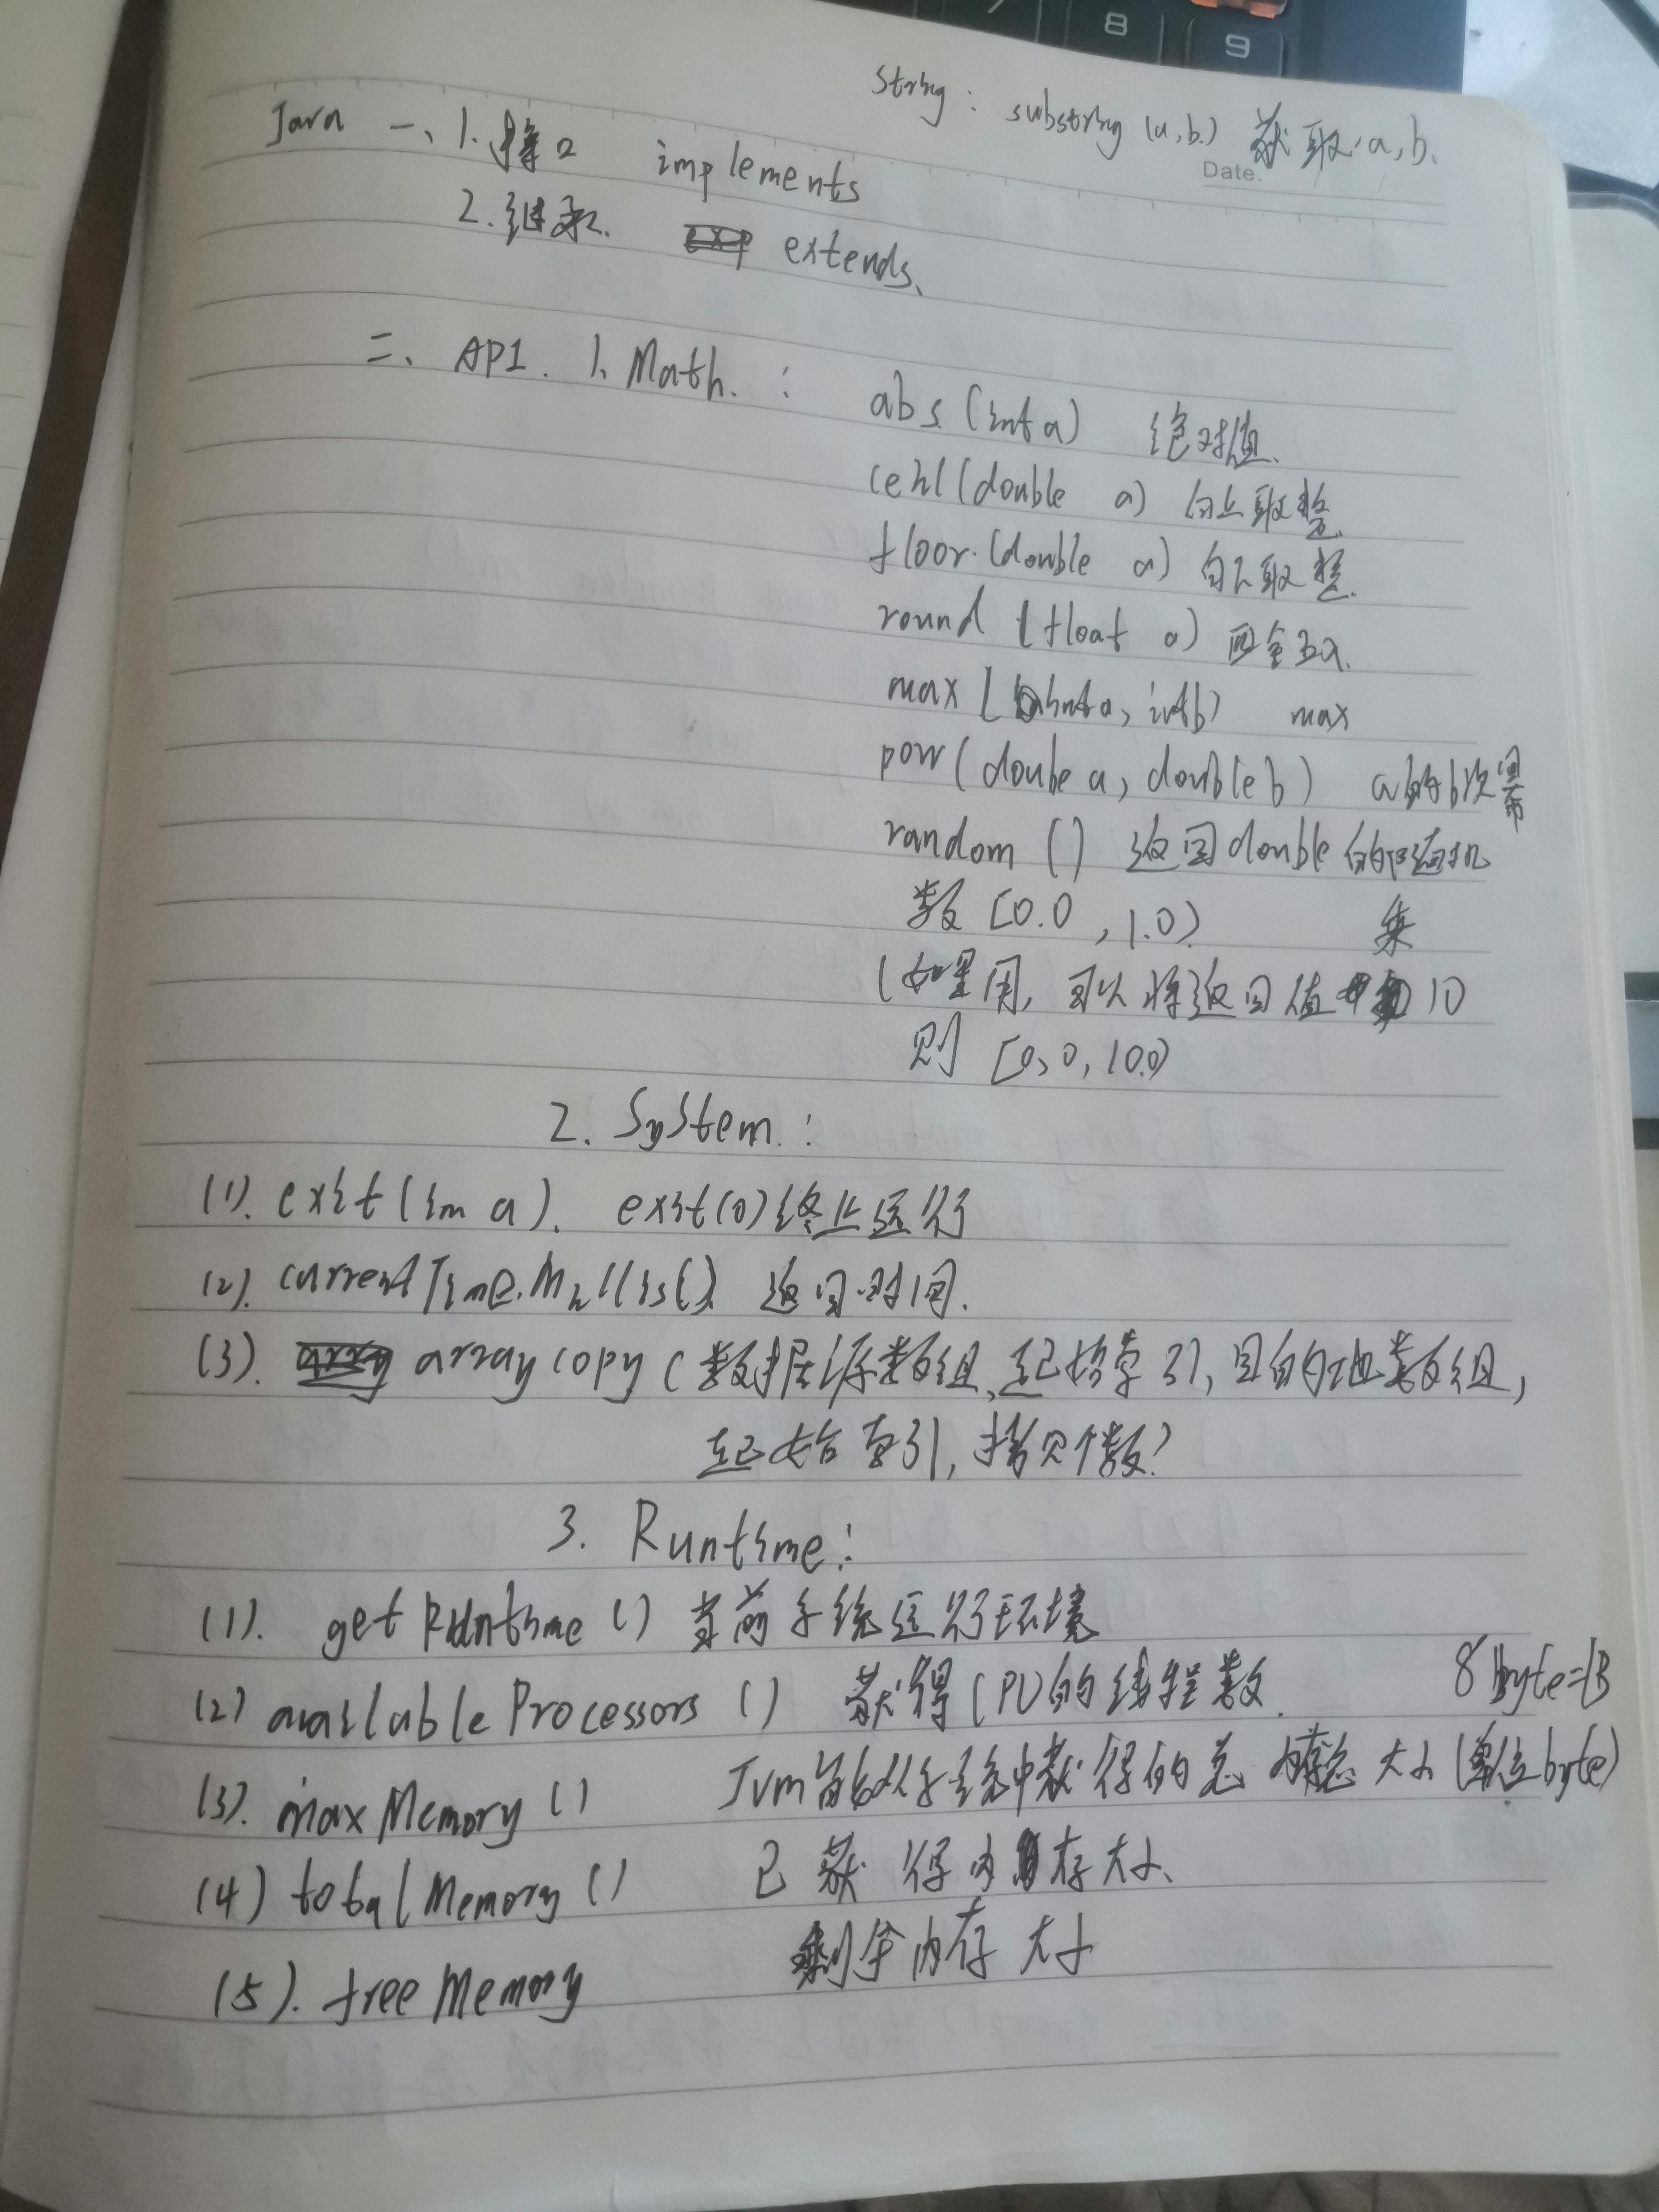 7 8 9
String : substring (a,b.) 获取 a,b.
Date.
Java 一、1.接口 implements
2.继承. extends、
二、API. 1、Math. :
abs (int a) 绝对值.
ceil (double a) 向上取整.
floor. (double a) 向下取整.
round (float a) 四舍五入.
max ( int a, int b) max
pow ( doube a, double b ) a的b次幂
random () 返回double的随机
数 [0.0 , 1.0)
乘
(如果用, 可以将返回值 10
则 [0,0, 10.0)
2. System. :
(1). exit (in a). exit(0)终止运行
(2). currentTime.Millis(). 返回时间.
(3). arraycopy (数据源数组、起始索引, 目的地数组,
起始索引, 拷贝个数)
3. Runtime :
(1). getRuntime () 当前系统运行环境
(2) availableProcessors () 获得CPU的线程数.
8 byte=1B
(3). maxMemory () Jvm能从系统中获得的总 大小 (单位byte)
(4) totalMemory () 已获得内存大小、
(5). freeMemory 剩余内存大小